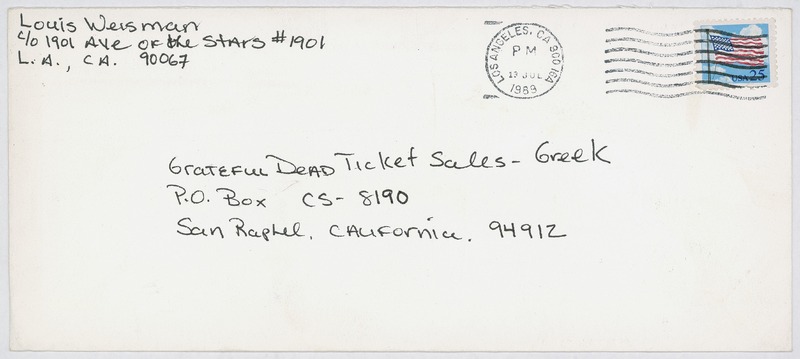 Louis Weisman
c/o 1901 Ave of the Stars #1901
L.A., CA. 90067
LOS ANGELES, CA 900
PM
13 JUL
1989
USA 25
Grateful Dead Ticket Sales - Greek
P.O. Box CS-8190
San Raphel, California. 94912